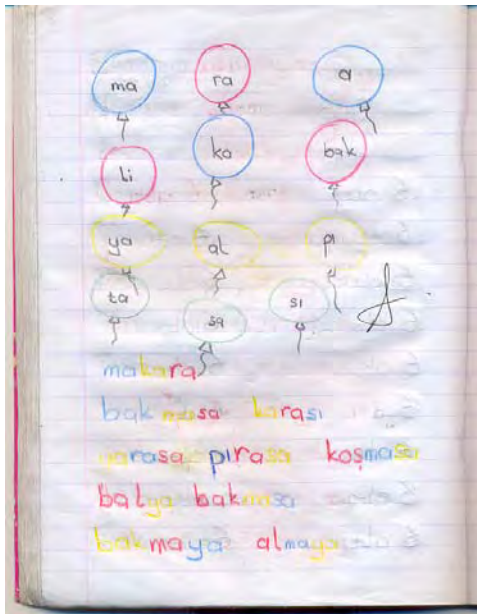 ma ra a
li ko bak
ya al pı
ta sa sı
makara
bak masa karası
yarasa pırasa koşması
balya bakması
bakmaya almaya